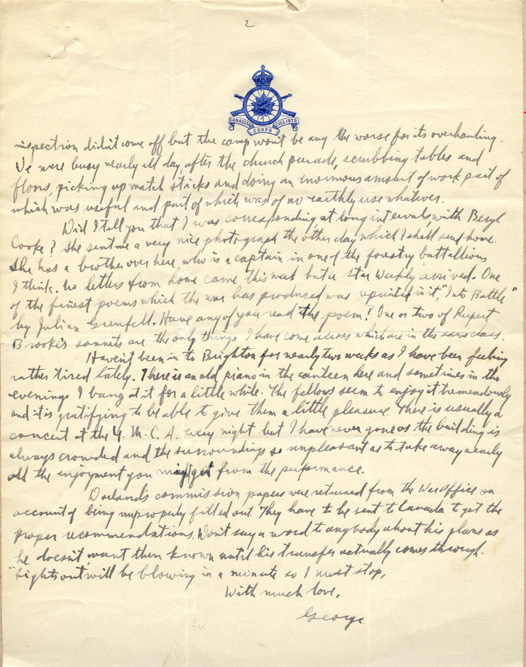 2
CANADIAN CYCLISTS
CORPS
inspection didn't come off but the camp won't be any the worse for its overhauling.
We were busy nearly all day after the church parade, scrubbing tables and
floors, picking up match sticks and doing an enormous amount of work part of
which was useful and part of which was of no earthly use whatever.
Did I tell you that I was corresponding at long intervals with Beryl
Cooke? She sent me a very nice photograph the other day which I shall send home.
She has a brother over here who is a captain in one of the forestry battallions
I think. No letters from home came this week but a Star Weekly arrived. One
of the finest poems which the war has produced was reprinted in it, "Into Battle"
by Julian Grenfell. Have any of you read the poem? One or two of Rupert
Brooke's sonnets are the only things I have come across which are in the same class.
Haven't been in to Brighton for nearly two weeks as I have been feeling
rather tired lately. There is an old piano in the canteen here and sometimes in the
evenings I bang at it for a little while. The fellows seem to enjoy it tremendously
and it is gratifying to be able to give them a little pleasure. There is usually a
concert at the Y.M.C.A. every night but I have never gone as the building is
always crowded and the surroundings so unpleasant as to take away nearly
all the enjoyment you might get from the performance.
Dorland's commission papers were returned from the War Office on
account of being improperly filled out. They have to be sent to Canada to get the
proper recommendations. Don't say a word to anybody about his plans as
he doesn't want them known until his transfer actually comes through.
"Lights out" will be blowing in a minute so I must stop,
With much love,
George